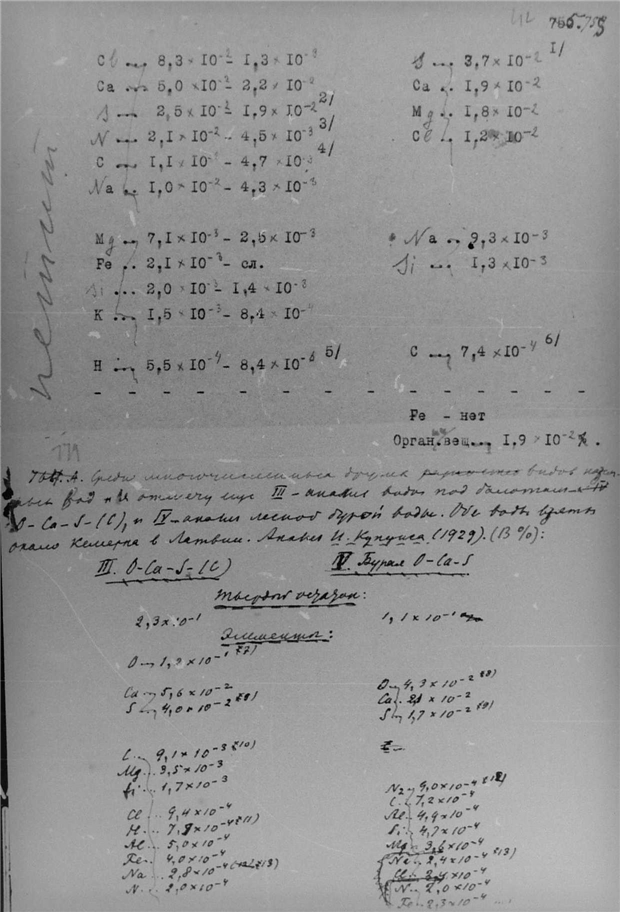 755.
Cl ... 8,3 × 10⁻² – 1,3 × 10⁻³
S ... 3,7 × 10⁻² 1/
Ca ... 5,0 × 10⁻² – 2,2 × 10⁻²
Ca .. 1,9 × 10⁻²
S ... 2,5 × 10⁻² – 1,9 × 10⁻² 2/
Mg .. 1,8 × 10⁻²
N ... 2,1 × 10⁻² – 4,5 × 10⁻³ 3/
Cl .. 1,2 × 10⁻²
C ... 1,1 × 10 – 4,7 × 10⁻³ 4/
Na .. 1,0 × 10⁻² – 4,3 × 10⁻³
петит
Mg ... 7,1 × 10⁻³ – 2,5 × 10⁻³
Na .. 9,3 × 10⁻³
Fe .. 2,1 × 10⁻³ – сл.
Si ... 1,3 × 10⁻³
Si ... 2,0 × 10⁻³ – 1,4 × 10⁻³
K ... 1,5 × 10⁻³ – 8,4 × 10⁻⁴
H ... 5,5 × 10⁻⁴ – 8,4 × 10⁻⁵ 5/
C ... 7,4 × 10⁻⁴ 6/
– – – – – – – – – – – – – – – – – – –
Fe – нет
Орган. вещ... 1,9 × 10⁻² % .
779
Среди многочисленных других видов
вод я отмечу еще III – анализ воды под болотами
O-Ca-S-(C), и IV – анализ лесной бурой воды. Обе воды взяты
около Кемерна в Латвии. Анализ И. Купциса (1929). (В %):
III. O-Ca-S-(C)
IV. Бурая O-Ca-S
Твердый остаток:
2,3 × 10⁻¹
1,1 × 10⁻¹
Элементы:
O – 1,3 × 10⁻¹ 7)
O – 4,3 × 10⁻² 8)
Ca – 5,6 × 10⁻²
Ca – 2,1 × 10⁻²
S – 4,0 × 10⁻² 8)
S – 1,7 × 10⁻² 9)
C ... 9,1 × 10⁻³ 10)
Mg .. 3,5 × 10⁻³
Si ... 1,7 × 10⁻³
N₂ – 9,0 × 10⁻⁴
C .. 7,2 × 10⁻⁴
Cl ... 9,4 × 10⁻⁴
Al – 4,9 × 10⁻⁴
H ... 7,8 × 10⁻⁴ 11)
Si .. 4,7 × 10⁻⁴
Al .. 5,0 × 10⁻⁴
Mg – 3,6 × 10⁻⁴
Fe .. 4,0 × 10⁻⁴
Na – 2,4 × 10⁻⁴ 13)
Na ... 2,8 × 10⁻⁴
Cl – 2,4 × 10⁻⁴
N .. 2,0 × 10⁻⁴
N .. 2,0 × 10⁻⁴
Fe – 2,3 × 10⁻⁴